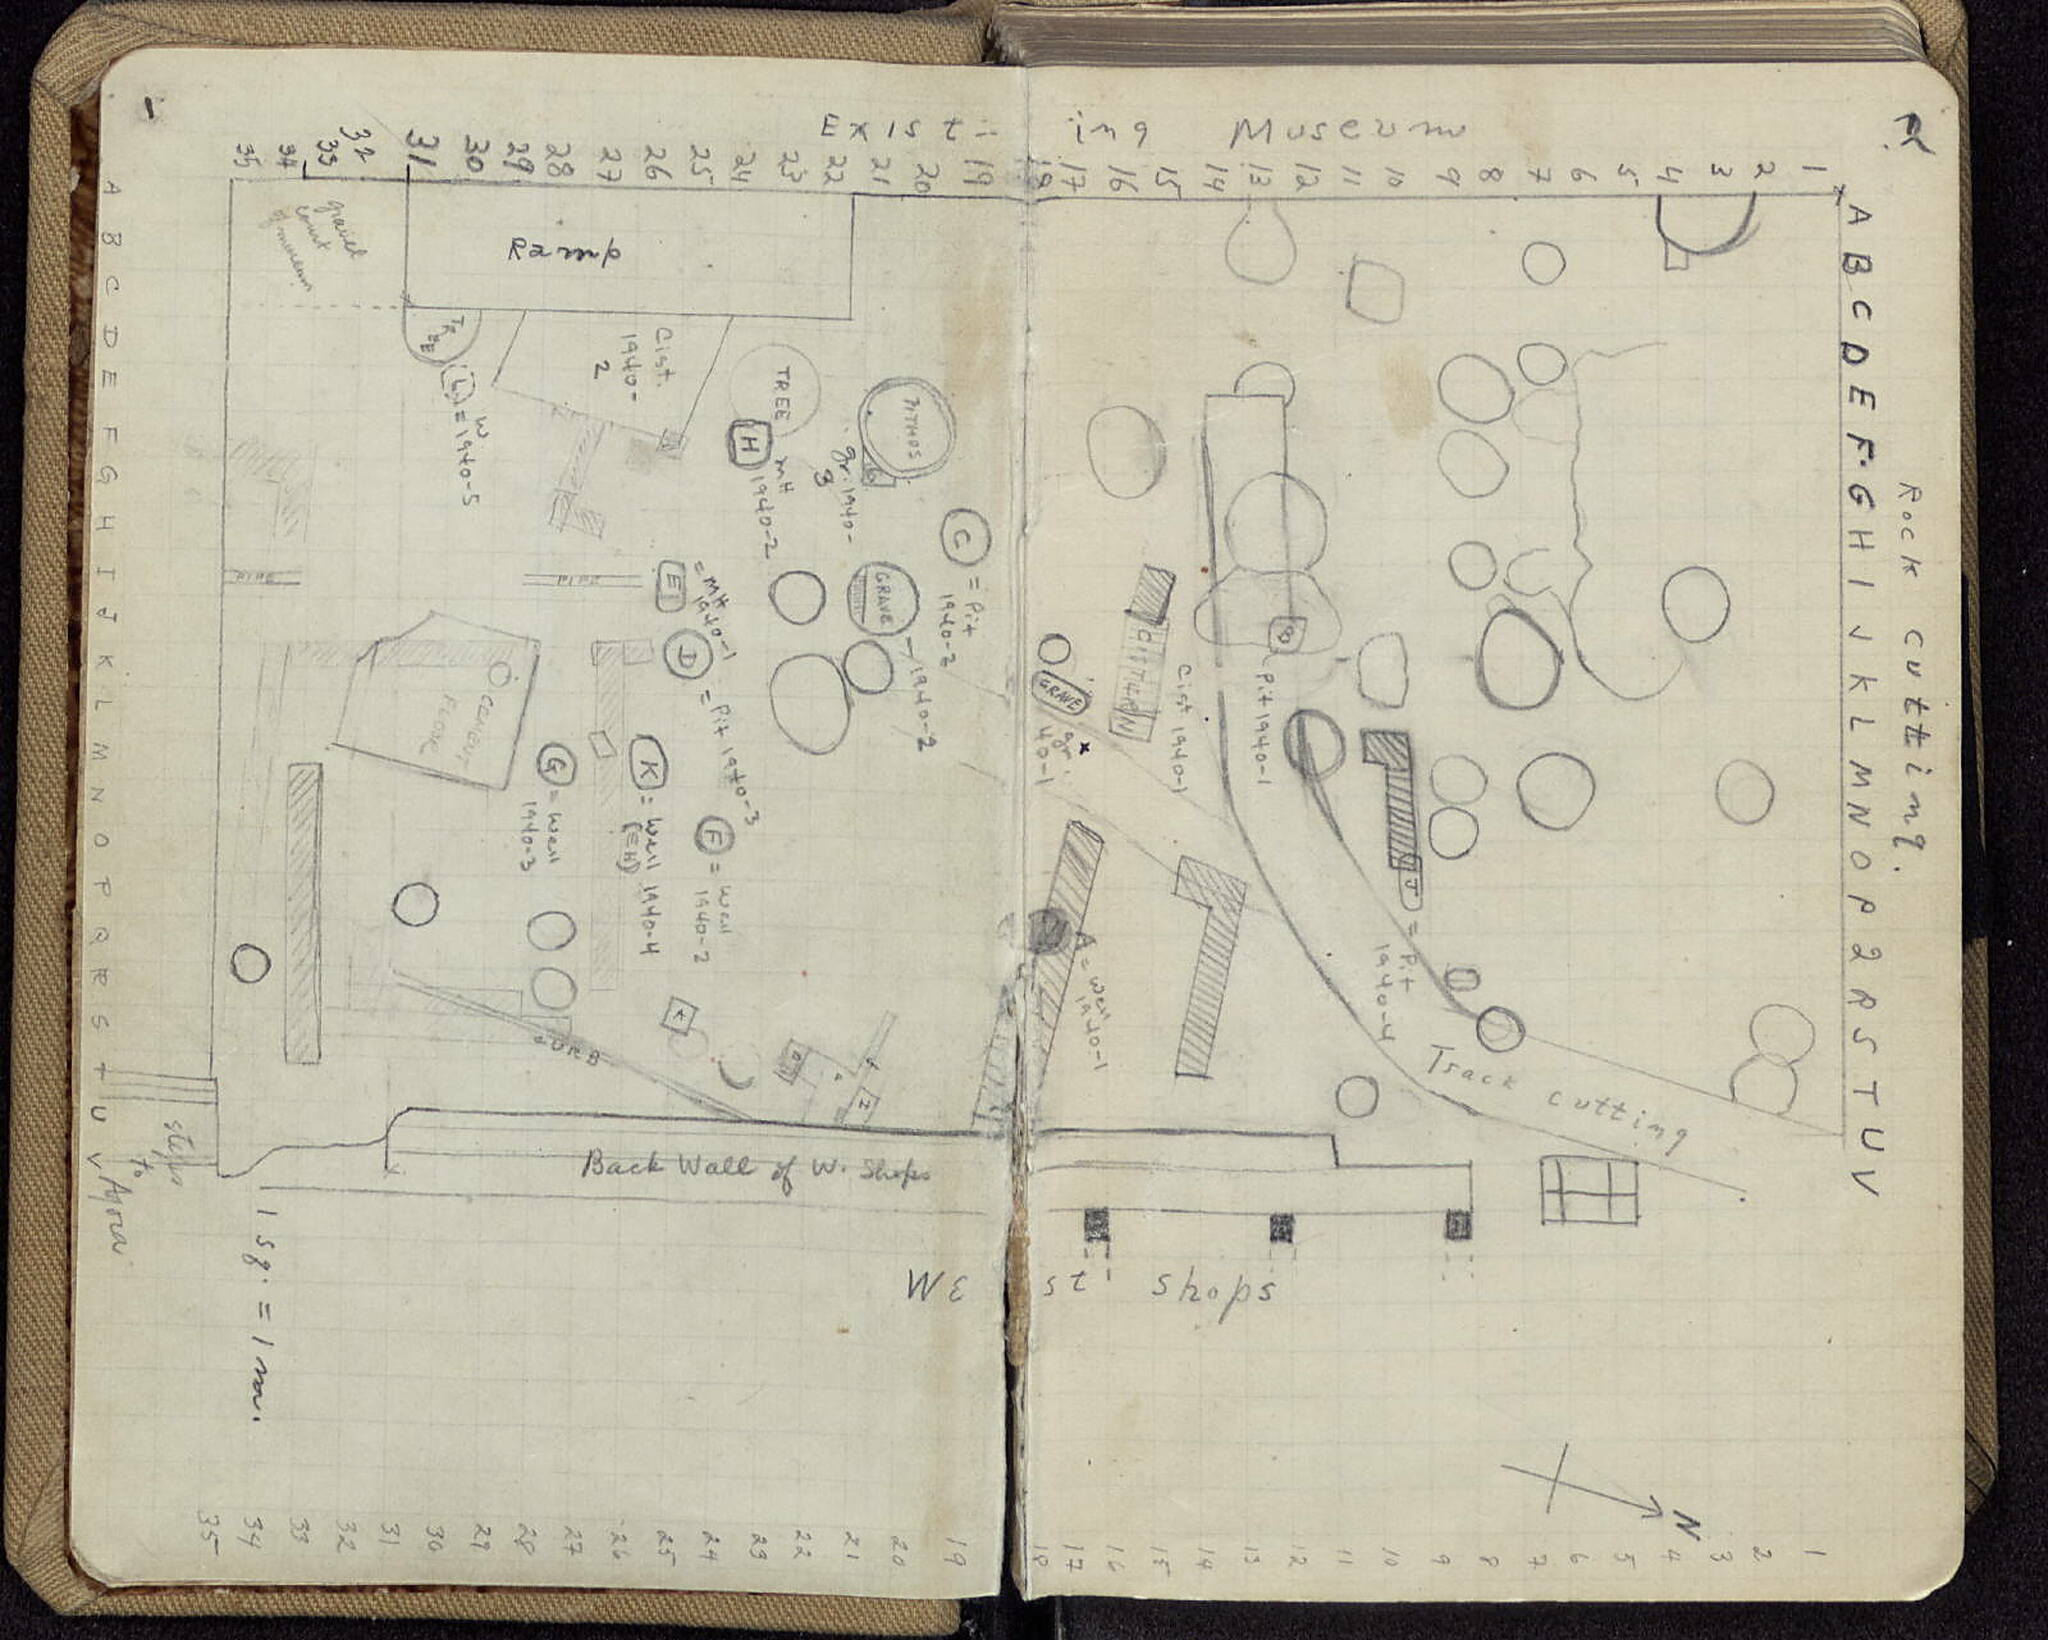 Existing Museum
35 34 33 32 31 30 29 28 27 26 25 24 23 22 21 20 19 18 17 16 15 14 13 12 11 10 9 8 7 6 5 4 3 2 1
A B C D E F G H I J K L M N O P Q R S T U V
gravel
court
of museum
Ramp
TREE
L = W
1940-5
Cist.
1940-
2
TREE
H
mH
1940-2
PITHOS
gr. 1940-
3
C = Pit
1940-2
E = mH
1940-1
GRAVE
1940-2
D = Pit 1940-3
CEMENT
FLOOR
G = Well
1940-3
K = Well 1940-4
(EH)
F = Well
1940-2
CURB
Back Wall of W. Shops
steps
to
Agora
1 sq. = 1 m.
GRAVE
gr.
40-1
CISTERN
Cist. 1940-1
B
Pit 1940-1
A = Well
1940-1
J = Pit
1940-4
Track cutting
Rock cutting.
A B C D E F G H I J K L M N O P Q R S T U V
West Shops
N
35 34 33 32 31 30 29 28 27 26 25 24 23 22 21 20 19 18 17 16 15 14 13 12 11 10 9 8 7 6 5 4 3 2 1